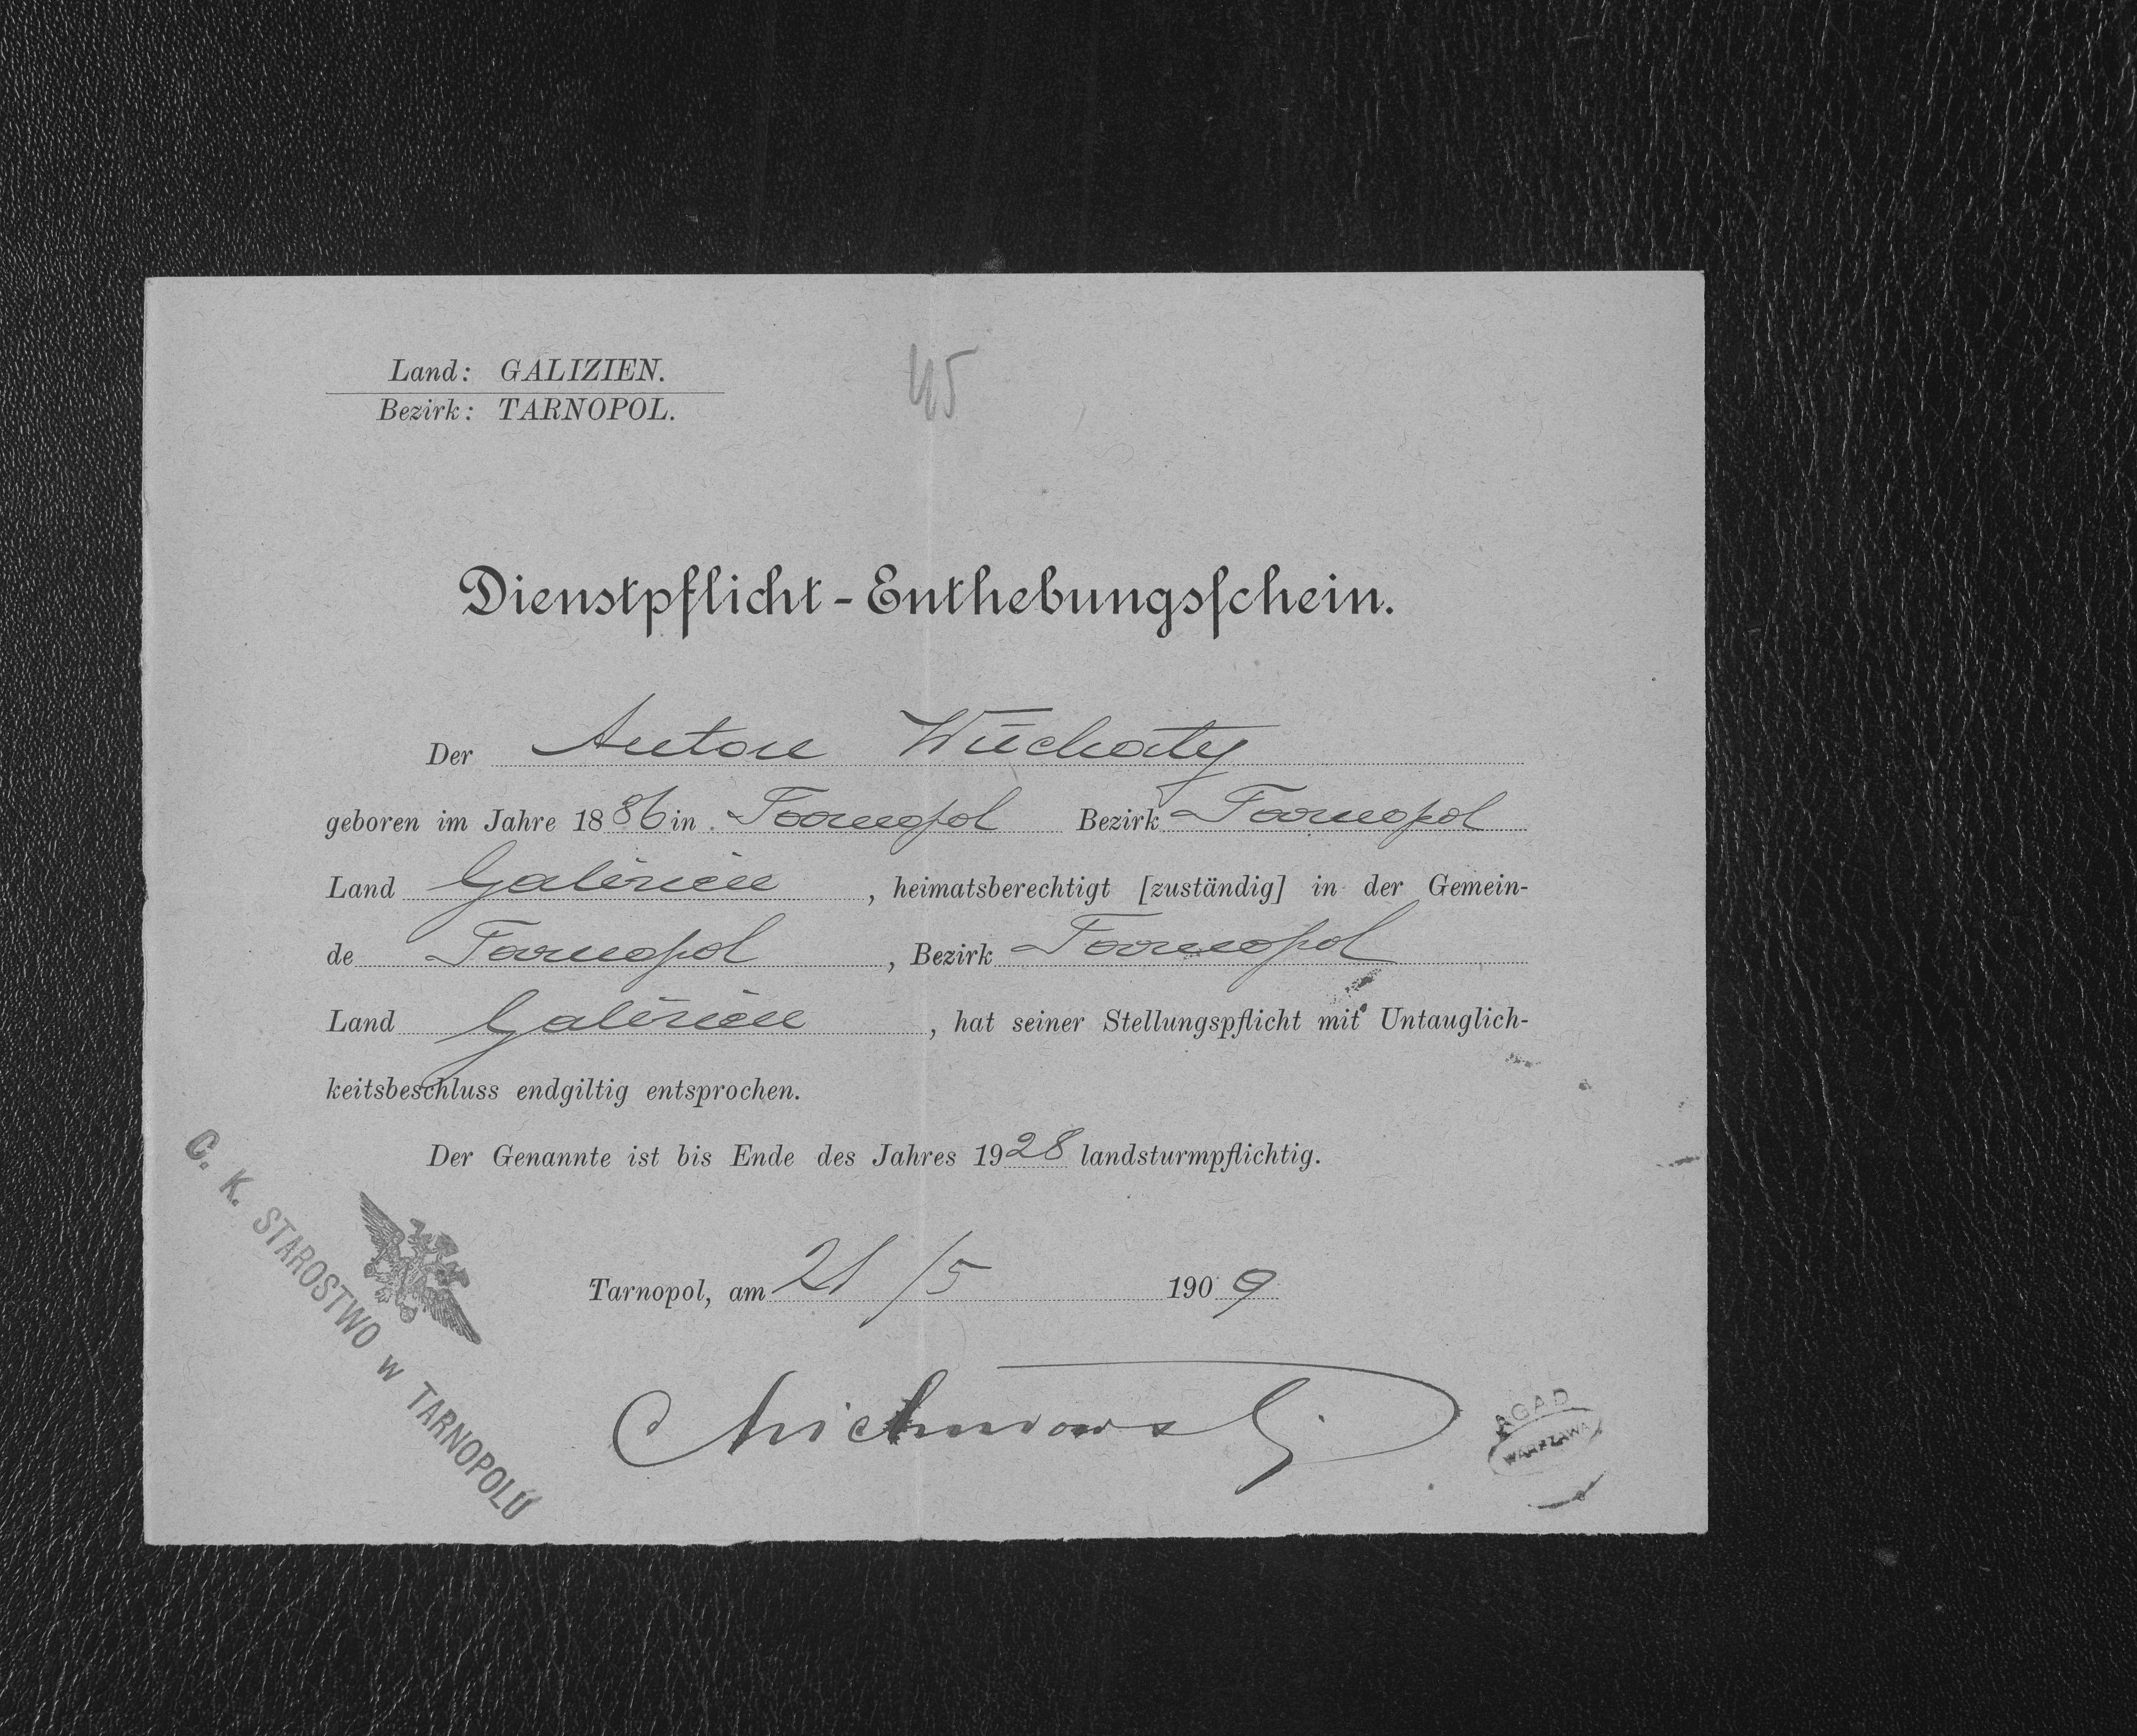 Land: GALIZIEN.
45
Bezirk: TARNOPOL.
Dienstpflicht-Enthebungsschein.
Der Anton Wuchaty
geboren im Jahre 1886 in Tarnopol Bezirk Tarnopol
Land Galizien, heimatsberechtigt [zuständig] in der Gemein-
de Tarnopol, Bezirk Tarnopol
Land Galizien, hat seiner Stellungspflicht mit Untauglich-
keitsbeschluss endgiltig entsprochen.
Der Genannte ist bis Ende des Jahres 1928 landsturmpflichtig.
C. K. STAROSTWO w TARNOPOLU
Tarnopol, am 21/5 1909
AGAD
WARSZAWA